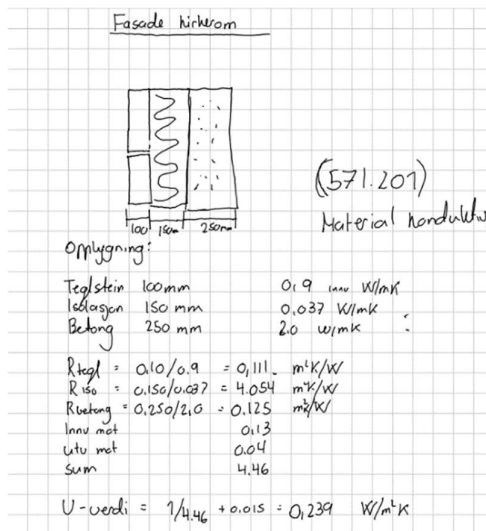 Fasade kirkerom
(571.201)
Material kondukti
100 150mm 250mm
Opplygning:
Teglstein 100mm 0,9 innv W/mK
Isolasjon 150 mm 0.037 W/mK
Betong 250 mm 2.0 W/mK
Rtegl = 0,10/0.9 = 0,111. m²K/W
Riso = 0.150/0.037 = 4.054 m²K/W
Rbetong = 0,250/2,0 = 0.125 m²K/W
Innv mot 0,13
utv mot 0.04
Sum 4,46
U-verdi = 1/4.46 + 0.015 = 0,239 W/m²K